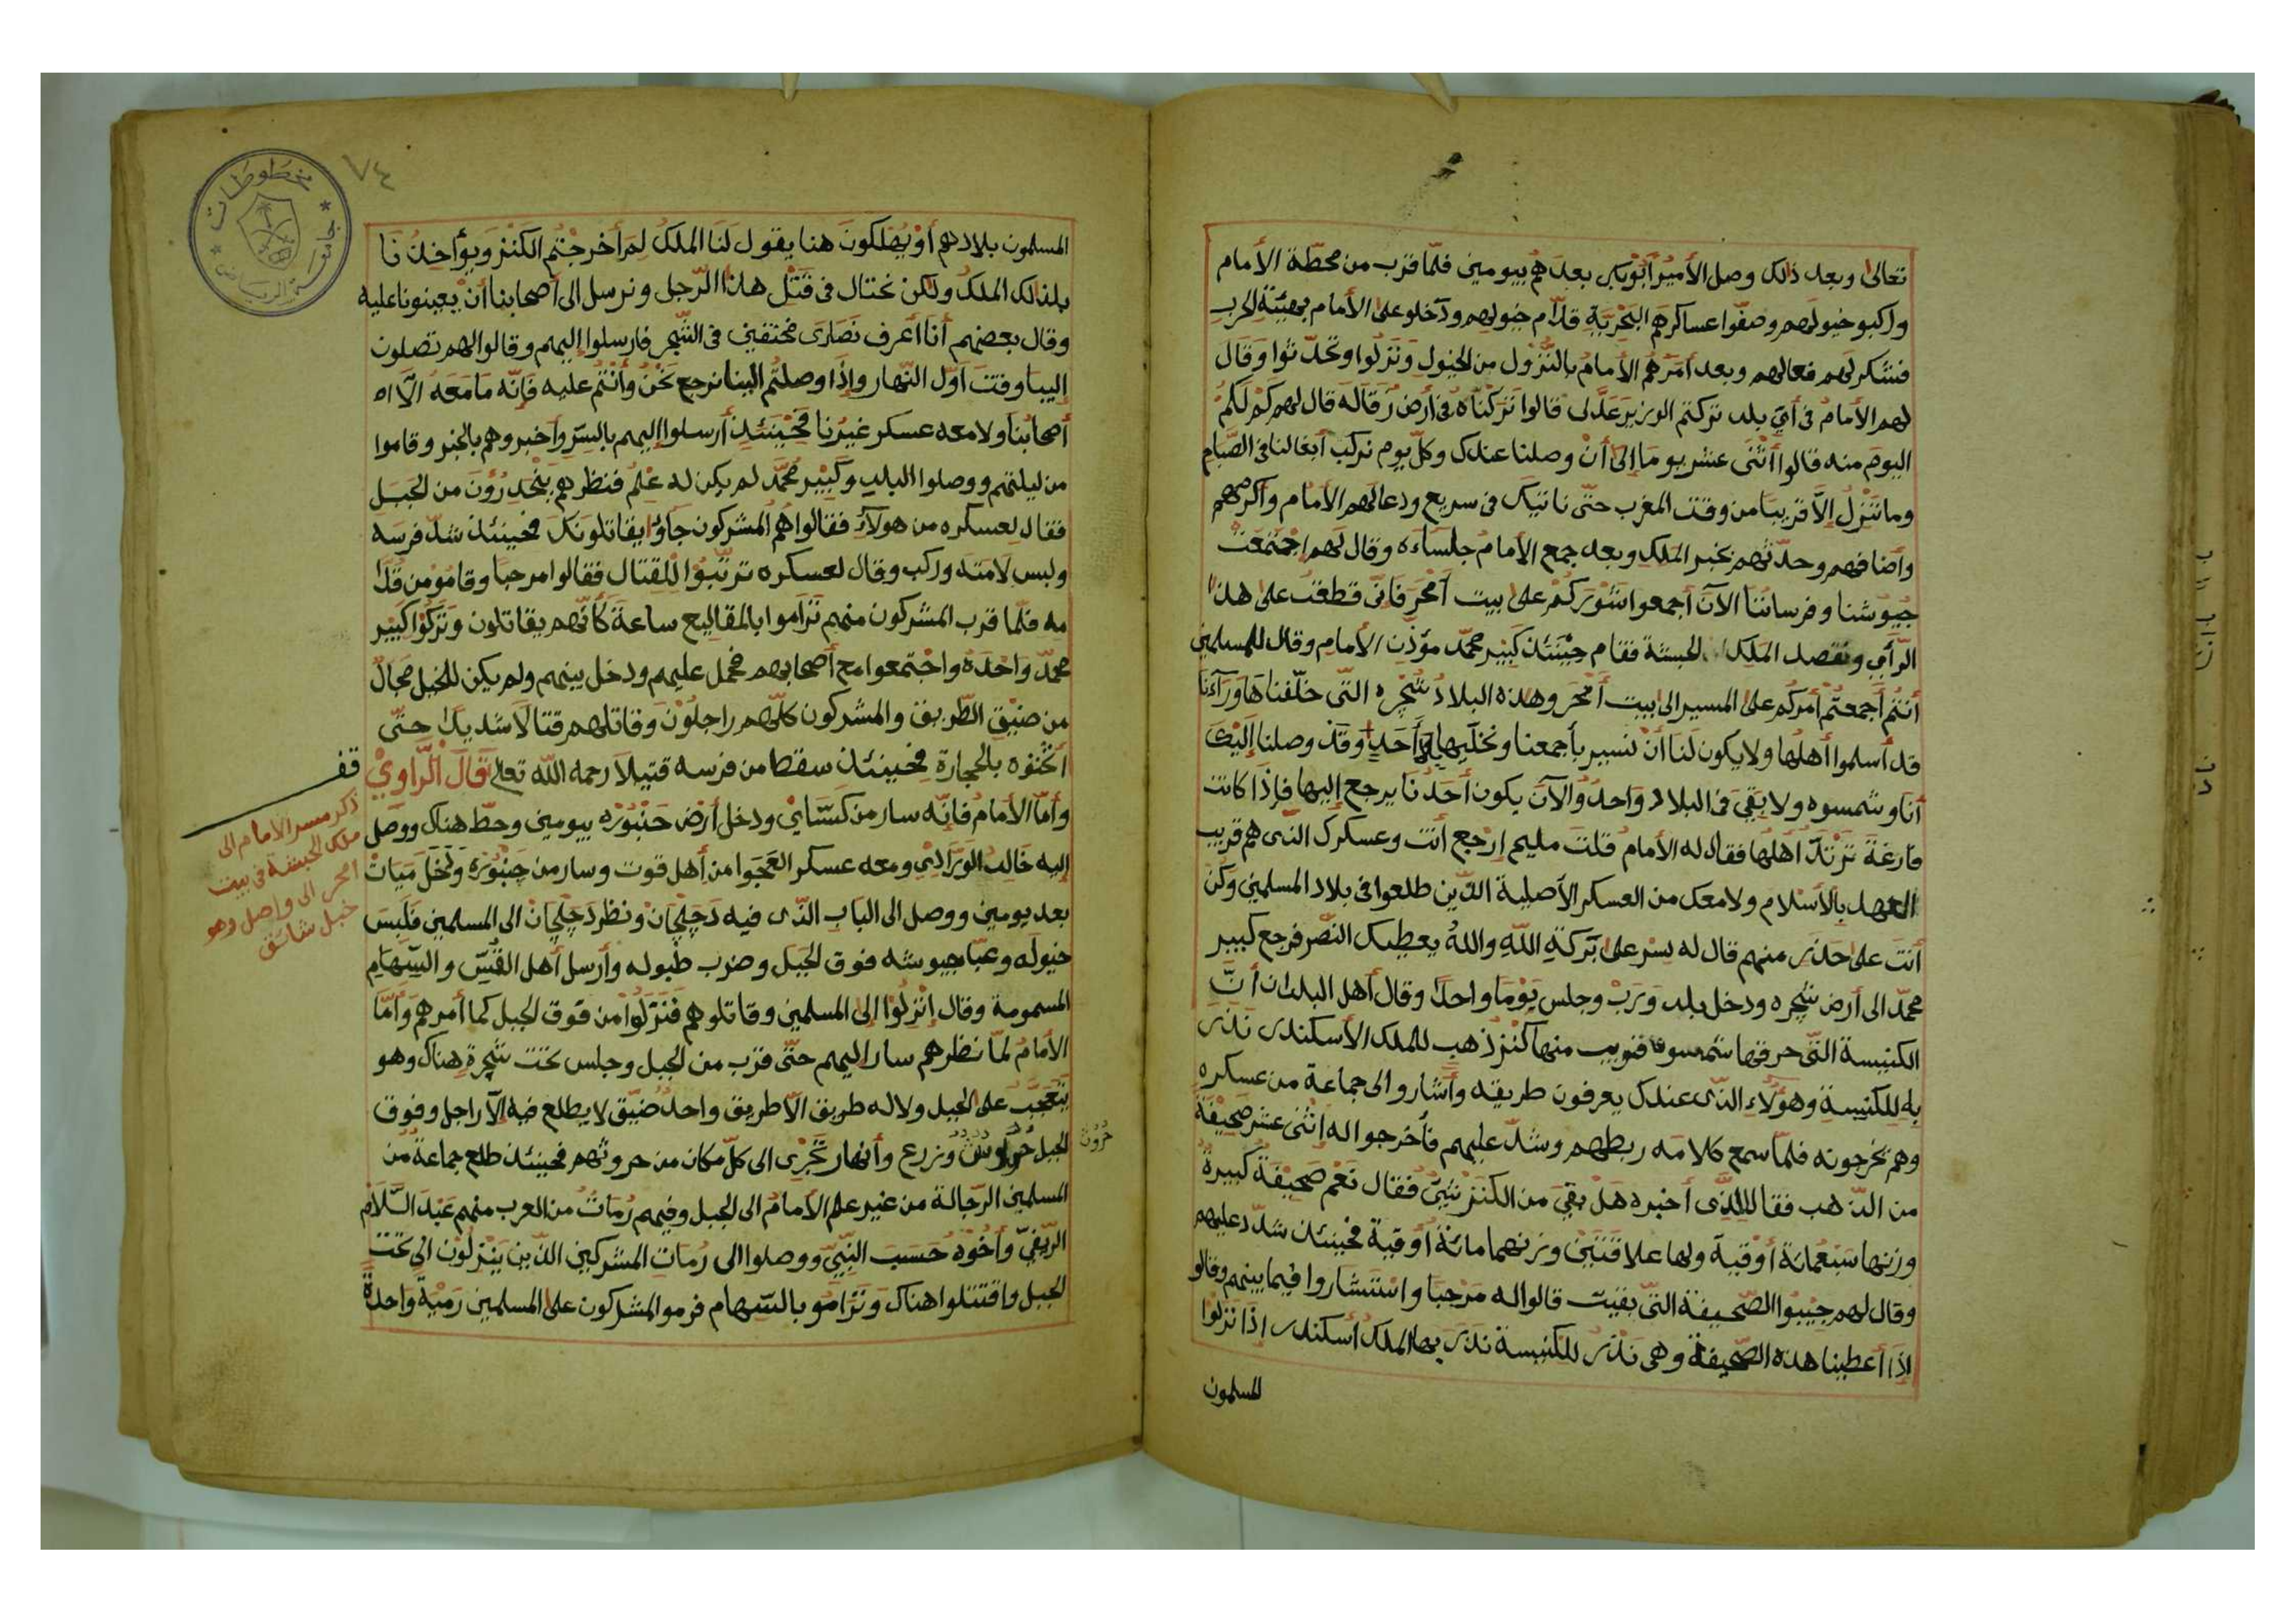 تعالى وبعد ذلك وصل الأمير أبوبكر بعدهم بيومين فلمّا قرب من محطّة الأمام
واركبو خيولهم وصفّوا عساكرهم البحريّة قدّام خيولهم ودخلو على الأمام بهيئة الحرب
فشكر لهم فعالهم وبعد أمرهم الأمام بالنّزول من الخيول ونزلوا وتحدّثوا وقال
لهم الأمام في أيّ بلد تركتم الوزير عدلى قالوا تركناه في أرض زقاله قال لهم كم لكم
اليوم منه قالوا أثنى عشر يوما إلى أن وصلنا عندك وكلّ يوم نركب أبغالنا في الصّيام
وما ننزل إلاّ قريبا من وقت المغرب حتّى ناتيك في سريع ودعا لهم الأمام وأكرمهم
وأضافهم وحدّثهم بخبر الملك وبعد جمع الأمام جلساءه وقال لهم اجتمعت
جيوشنا وفرساننا الآن أجمعوا شوركم على بيت أمحر فانّى قطعت على هذا
الرّأي ونقصد الملك الحبشة فقام حينئذ كبير محمّد مؤذن الأمام وقال للمسلمين
أنتم أجمعتم أمركم على المسير الى بيت أمحر وهذه البلاد شجره التى خلّفناها ورآءنا
قد أسلموا أهلها ولا يكون لنا أن نسير بأجمعنا ونخلّيها بلا أحد وقد وصلنا إليك
أنا وشمسوه ولا بقي في البلاد واحد والآن يكون أحدنا يرجع إليها فإذا كانت
فارغة ترتدّ أهلها فقال له الأمام قلت مليح ارجع أنت وعسكرك الذى هم قريب
العهد بالأسلام ولا معك من العسكر الأصلية الذين طلعوا في بلاد المسلمين وكن
أنت على حذر منهم قال له سر على بركة الله والله يعطيك النّصر فرجع كبير
محمّد الى أرض شجره ودخل بلد ورب وجلس يوما واحدا وقال أهل البلدان أنّ
الكنيسة التى حرقها شمسوه قريب منها كنز ذهب للملك الأسكندر نذر
به للكنيسة وهؤلاء الذى عندك يعرفون طريقه وأشاروا الى جماعة من عسكره
وهم يخرجونه فلمّا سمع كلامه ربطهم وشدّ عليهم فأخرجوا له اثنى عشر صحيفة
من الذهب فقال للذى أخبره هل بقي من الكنز شيئ فقال نعم صحيفة كبيرة
وزنها سبعمائة أوقية ولها علاقتين وزنهما مائة أوقية فحينئذ شدّد عليهم
وقال لهم جيبوا الصّحيفة التى بقيت قالوا له مرحبا واستشاروا فيما بينهم وقالو
اذا أعطينا هذه الصّحيفة وهى نذر للكنيسة نذر بها الملك أسكندر إذا نزلوا
المسلمون
٧٤
مخطوطات
جامعة الرياض
المسلمون بلادهم أو يهلكون هنا يقول لنا الملك لم أخرجتم الكنز ويؤاخذنا
بذالك الملك ولكن نحتال في قتل هذا الرّجل ونرسل الى أصحابنا أن يعينونا عليه
وقال بعضهم أنا أعرف نصارى مختفين في الشّجر فارسلوا إليهم وقالوا لهم تصلون
إلينا وقت أوّل النّهار وإذا وصلتم الينا نرجع نحن وأنتم عليه فإنّه ما معه الاّ
أصحابنا ولا معه عسكر غيرنا فحينئذ أرسلوا إليهم بالسّر وأخبروهم بالخبر وقاموا
من ليلتهم ووصلوا البلد وكبير محمّد لم يكن له علم فنظرهم ينحدرون من الجبل
فقال لعسكره من هولآء فقالوا هم المشركون جاؤا يقاتلونك فحينئذ شدّ فرسه
ولبس لامته وركب وقال لعسكره ترتّبوا للقتال فقالوا مرحبا وقامو من قدّا
مه فلمّا قرب المشركون منهم تراموا بالمقاليع ساعة كأنّهم يقاتلون وتركوا كبير
محمّد واحده واجتمعوا مع أصحابهم فحمل عليهم ودخل بينهم ولم يكن للخيل مجال
من ضيق الطّريق والمشركون كلّهم راجلون وقاتلهم قتالا شديدا حتّى
أثخنوه بالحجارة فحينئذ سقط من فرسه قتيلا رحمه الله تعالى قال الرّاوي
قف
ذكر مسير الامام الى
ملك الحبشة في بيت
امحر الى واصل وهو
جبل شاسق
وأمّا الأمام فإنّه سار من كسّاي ودخل أرض جنبوره بيومين وحطّ هناك ووصل
إليه خالد الورادي ومعه عسكر العجوا من أهل قوت وسار من جنبوره ودخل ميات
بعد يومين ووصل الى الباب الذى فيه دجلجان ونظر دجلجان الى المسلمين فلبس
خيوله وعبّا جيوشه فوق الجبل وضرب طبوله وأرسل أهل القسّ والسّهام
المسمومة وقال إنزلوا إلى المسلمين وقاتلوهم فنزلوا من فوق الجبل كما أمرهم وأمّا
الأمام لمّا نظرهم سار اليهم حتّى قرب من الجبل وجلس تحت شجرة هناك وهو
يتعجّب على الجبل ولا له طريق الاّ طريق واحد ضيّق لا يطلع فيه إلاّ راجل وفوق
الجبل حروث وزرع وأنهار تجرى الى كلّ مكان من حروثهم فحينئذ طلع جماعة من
حروث
المسلمين الرّجالة من غير علم الأمام الى الجبل وفيهم رمات من العرب منهم عبد السّلام
الريفيّ وأخوه حسب النّبيّ ووصلوا الى رمات المشركين الذين ينزلون الى تحت
الجبل واقتتلوا هناك وترامو بالسّهام فرموا المشركون على المسلمين رمية واحدة